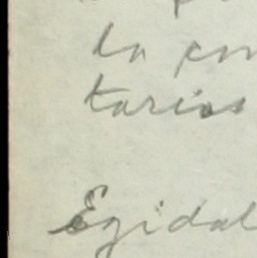 la con
tarios
Egidal